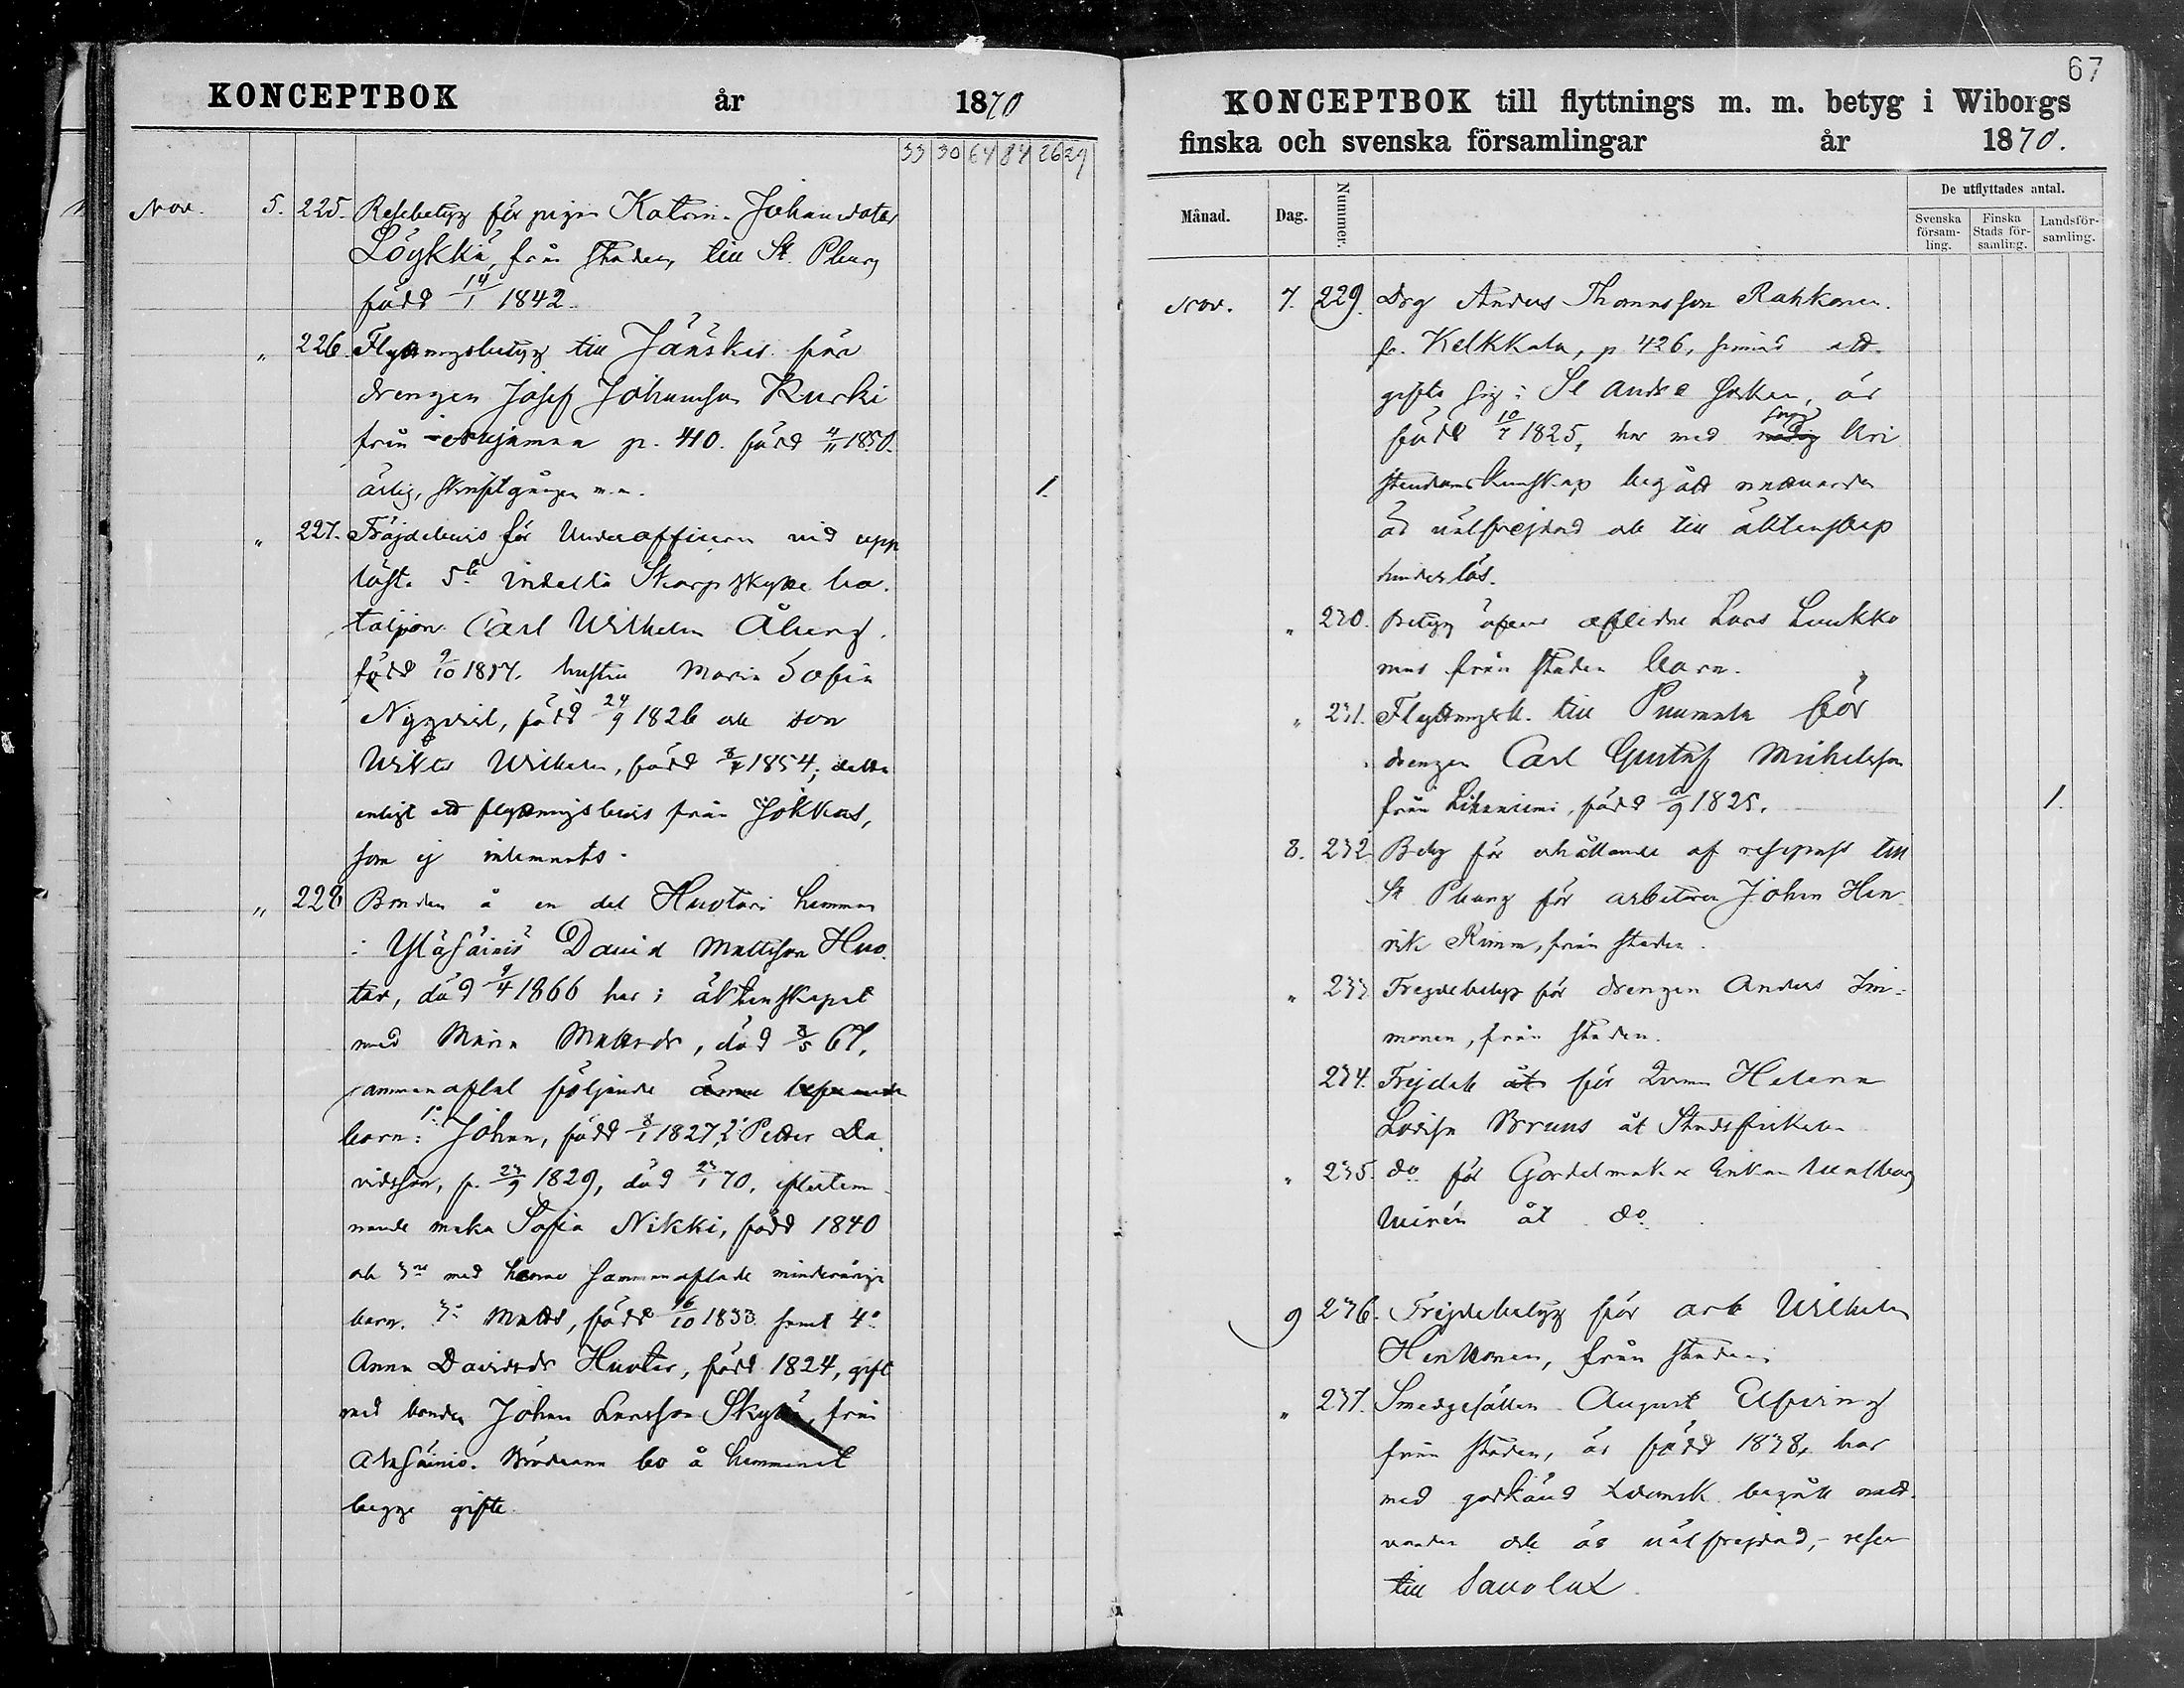 KONCEPTBOK år 1870
33 30 64 84 26 29
Nov. 5. 225. Resebetyg för pigan Katrin Johansdoter
Löykkä, från staden, till St. Pburg
född 14/1 1842.
" 226. Flyttningsbetyg till Jääskis för
drengen Josef Johansson Kurki
från Nuijamaa p. 410. född 4/11 1850.
ärlig, skriftgången m.m. 1.
" 227. Fräjdebevis för Underofficeren vid upp
löste 5te indelta Skarpskytte ba-
taljon Carl Wilhelm Åberg,
född 9/10 1817. hustru Maria Sofia
Nyqvist, född 24/9 1826 och son
Viktor Wilhelm, född 1854; detta
enligt ett flyttningsbevis från Jokkas,
som ej inlemnats.
" 228 Bonden å en del Huotari hemman
i Yläsäiniö David Mattsson Huo
tar, död 9/4 1866 har i äktenskapet
med Maria Mattsdr, död 3/5 67,
sammanaflat följande ännu
barn: 1o Johan, född 8/1 1827, 2o Petter Da
vidsson, f. 23/9 1829, död 23/1 70, efterlem-
nande maka Sofia Nikki, född 1840
och 3ne med henne sammanaflade minderåriga
barn. 3o Matts, född 16/10 1833 samt 4o
Anna Davidsdr Huotar, född 1824, gift
med bonden Johan Larsson Skyttä, från
Alasäiniö. Bröderna bo å hemmanet
begge gifte.
67
KONCEPTBOK till flyttnings m. m. betyg i Wiborgs
finska och svenska församlingar år 1870.
Månad. Dag. Nummer. De utflyttades antal.
Svenska församling. Finska Stads församling. Landsförsamling.
Nov. 7. 229. Drg Anders Thomasson Rahkonen
fr. Kelkkala, p 426, ärnad att
gifta sig i St Andrae socken, är
född 10/7 1825, har med nödig Kri
stendomskunskap begått nattvarden
är välfrejdad och till äktenskap
hinderlös.
" 230. Betyg öfver aflidne Lars Luukko
nens från staden barn.
" 231. Flyttningsb. till Puumala för
drengen Carl Gustaf Mikelsson
från Lihaniemi, född 1825. 1.
8. 232. Betyg för erhållande af resepass till
St Pburg för arbetaren Johan Hen
rik Rimm, från staden.
" 233 Frejdebetyg för drengen Anders Im-
monen, från staden.
234. Frejdeb åt för Helena
Lovisa Bruns åt Stadsfiskalen
" 235. do för Gördelmakare Enkan
åt do.
9 236. Frejdebetyg för arb Wilhelm
Henttonen, från staden.
" 237. Smedgesällen August Elfving
från staden, är född 1838, har
med godkänd kdomsk. begått natt-
varden och är välfrejdad, - reser
till Savolax.